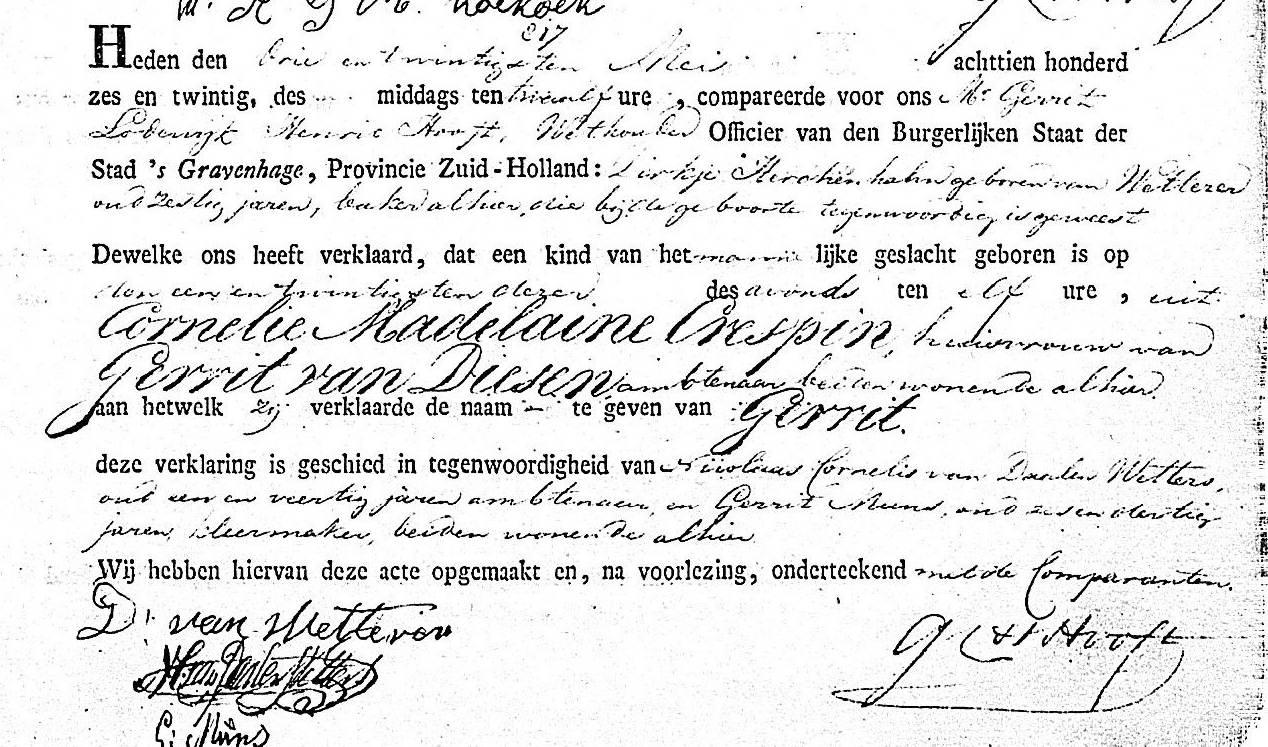 Mr A G M. Koekoek
217
Heden den drie en twintigsten Mei achttien honderd
zes en twintig, des middags ten twaalf ure, compareerde voor ons Mr Gerrit
Lodewijk Henric Hooft, Wethouder Officier van den Burgerlijken Staat der
Stad 's Gravenhage, Provincie Zuid-Holland: Dirkje geboren van
oud zestig jaren, alhier, die bij de geboorte tegenwoordig is geweest
Dewelke ons heeft verklaard, dat een kind van het mannelijke geslacht geboren is op
den een en twintigsten dezer des avonds ten elf ure, uit
Cornelie Madelaine Crespin, huisvrouw van
Gerrit van Diesen, ambtenaar beiden wonende alhier
aan hetwelk zij verklaarde de naam te geven van Gerrit.
deze verklaring is geschied in tegenwoordigheid van Nicolaas Cornelis van Daalen Wetters,
oud een en veertig jaren ambtenaar, en Gerrit Muns, oud zes en dertig
jaren, kleermaker, beiden wonende alhier
Wij hebben hiervan deze acte opgemaakt en, na voorlezing, onderteekend met de Comparanten.
D: van
G L H Hooft
van Daalen Wetters
G: Muns